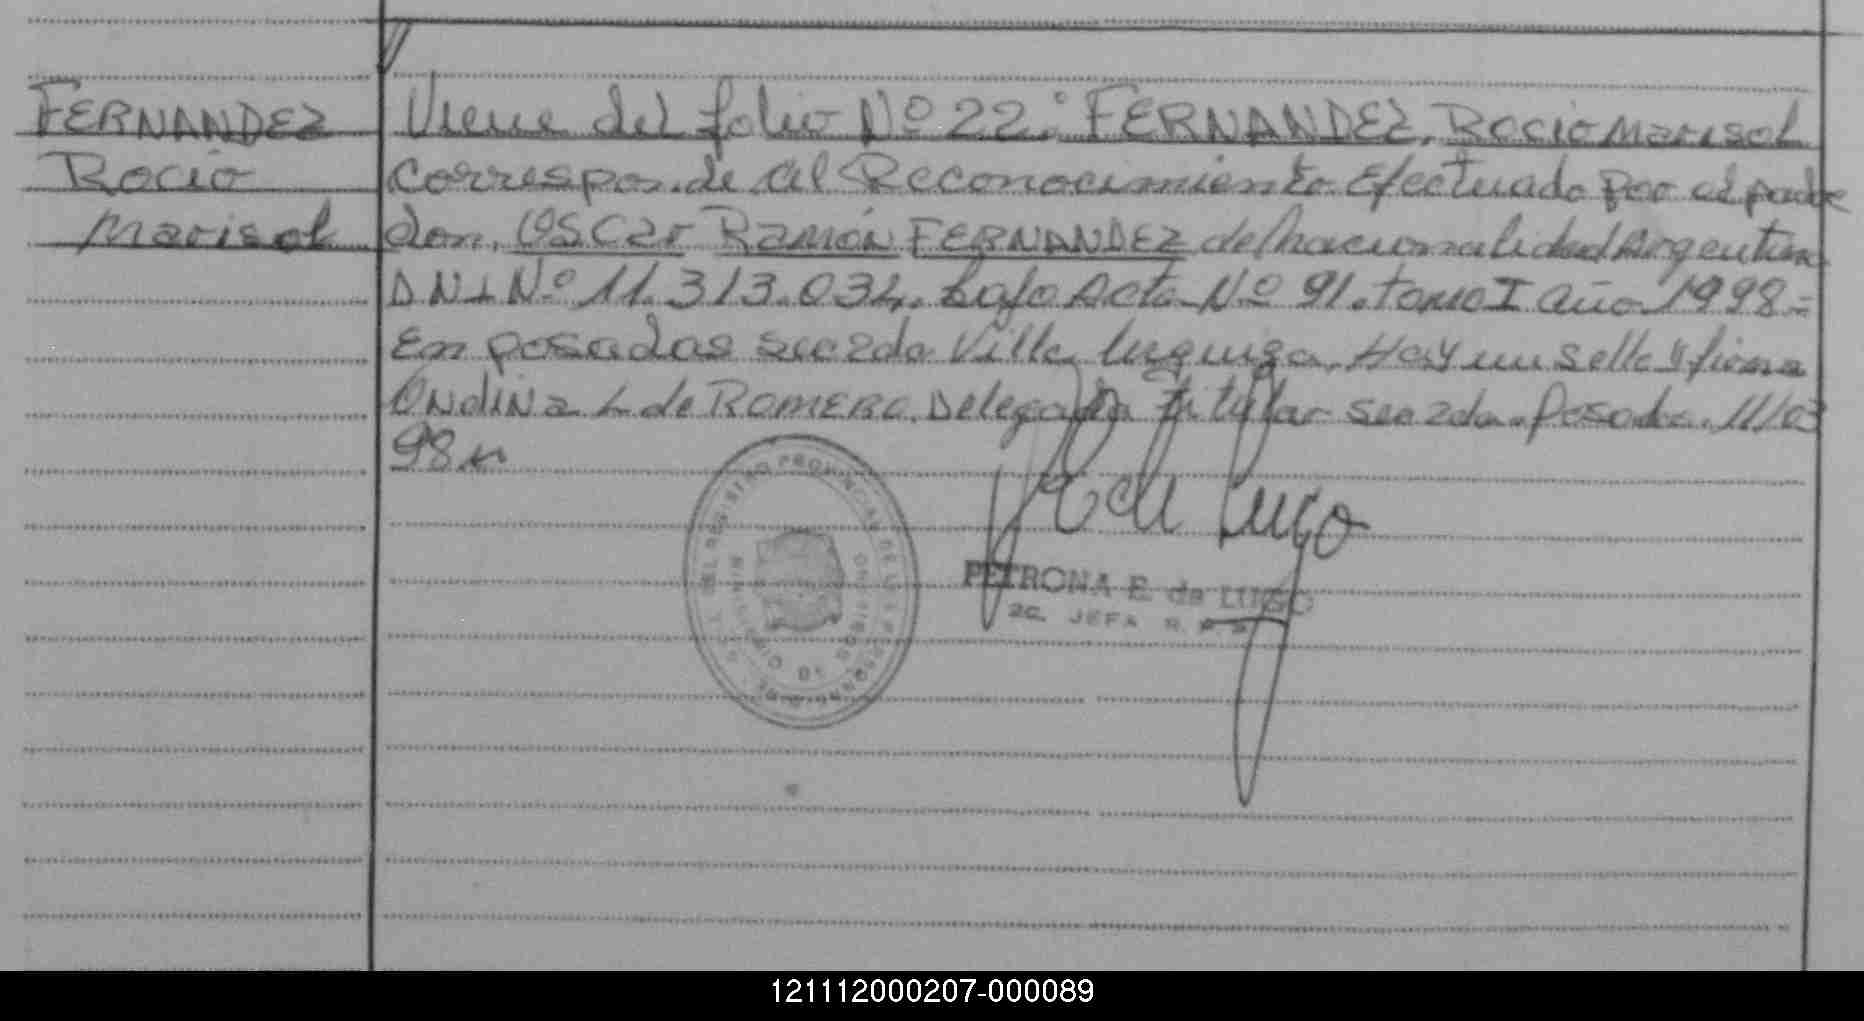 FERNANDEZ
Rocio
Marisol
Viene del folio Nº 22: FERNANDEZ, Rocio Marisol
corresponde al Reconocimiento Efectuado por el padre
don, OSCar Ramón FERNANDEZ de nacionalidad Argentina
DNI Nº 11.313.034, bajo Acta Nº 91. tomo I año 1998=
En posadas secc 2da Villa Urquiza. Hay un sello y firma
Ondina L de ROMERO. Delegada Titular secc 2da. Posadas. 11/03
98
PETRONA E. de LUGO
2a. JEFA R. P. S.
121112000207-000089